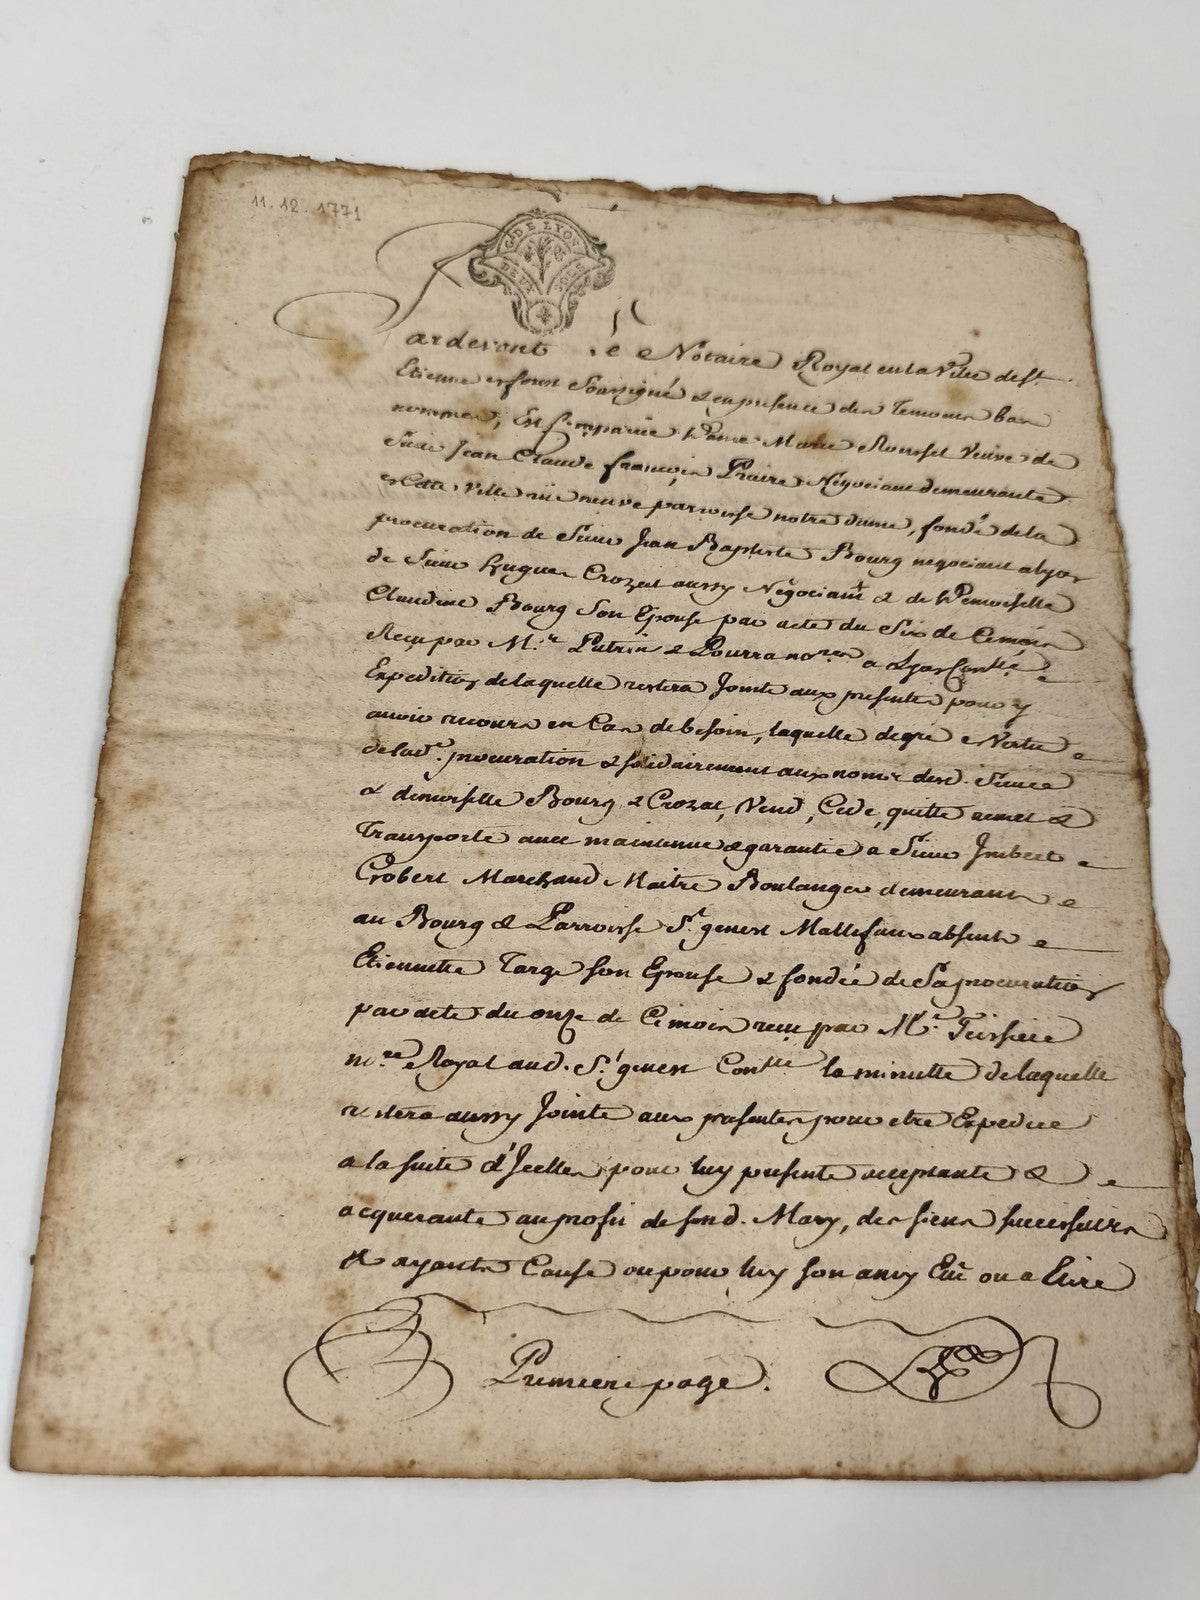 11.12.1771
G. DE LYON
DEUX SOLS
Pardevant le Notaire Royal en la Ville de St.
Etienne en forest Soussigné & en presence des temoins bas
nommés, Est Comparüe dame Marie Rousset Veuve de
Sieur Jean Claude françois Praire Négociant demeurante
en Cette Ville rüe neuve parroisse notre dame, fondé de la
procuration de Sieur Jean Baptiste Bourg negociant a lyon
de Sieur hugues Crozat aussy Négociant & de demoiselle
Claudine Bourg Son Epouse par acte du Six de Cemois
Reçu par M.re & nores a Lyon Contlé
Expedition de laquelle restera Jointe aux presentes pour y
avoir recours en Cas de besoin, laquelle de gré en Vertu
de lade. procuration & solidairement aux noms desd. Sieurs
& demoiselle Bourg & Crozat, Vend, Cede, quitte remet &
Transporte avec maintenue & garantie a Sieur Imbert
Crobert Marchand Maitre Boulanger demeurant
au Bourg & Parroisse St. genest Mallifaux absent
Etiennette Targe son Epouse & fondée de Sa procuration
par acte du onze de Cemois reçu par Me. Teissiere
nore Royal aud. St. genest Contlle la minutte de laquelle
restera aussy Jointe aux presentes pour etre Expediée
a la suite d'Icelles pour luy presente acceptante &
acquerante au profit de sond. Mary, des siens successeurs
& ayants Cause ou pour luy son amy Elû ou a Elire
Premiere page.